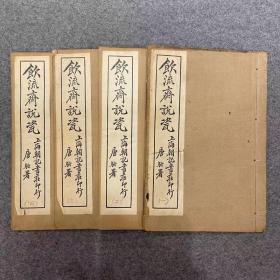 飲流齋說瓷
上海朝記書莊印行
唐駝署
飲流齋說瓷
上海朝記書莊印行
唐駝署
飲流齋說瓷
上海朝記書莊印行
唐駝署
飲流齋說瓷
上海朝記書莊印行
唐駝署